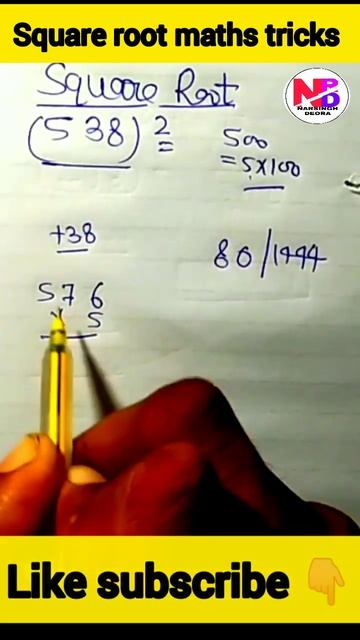 Square root maths tricks
Square Root
NPD
NARSINGH
DEORA
(538)²
=
500
= 5x100
+38
80/1444
576
x 5
Like subscribe 👇